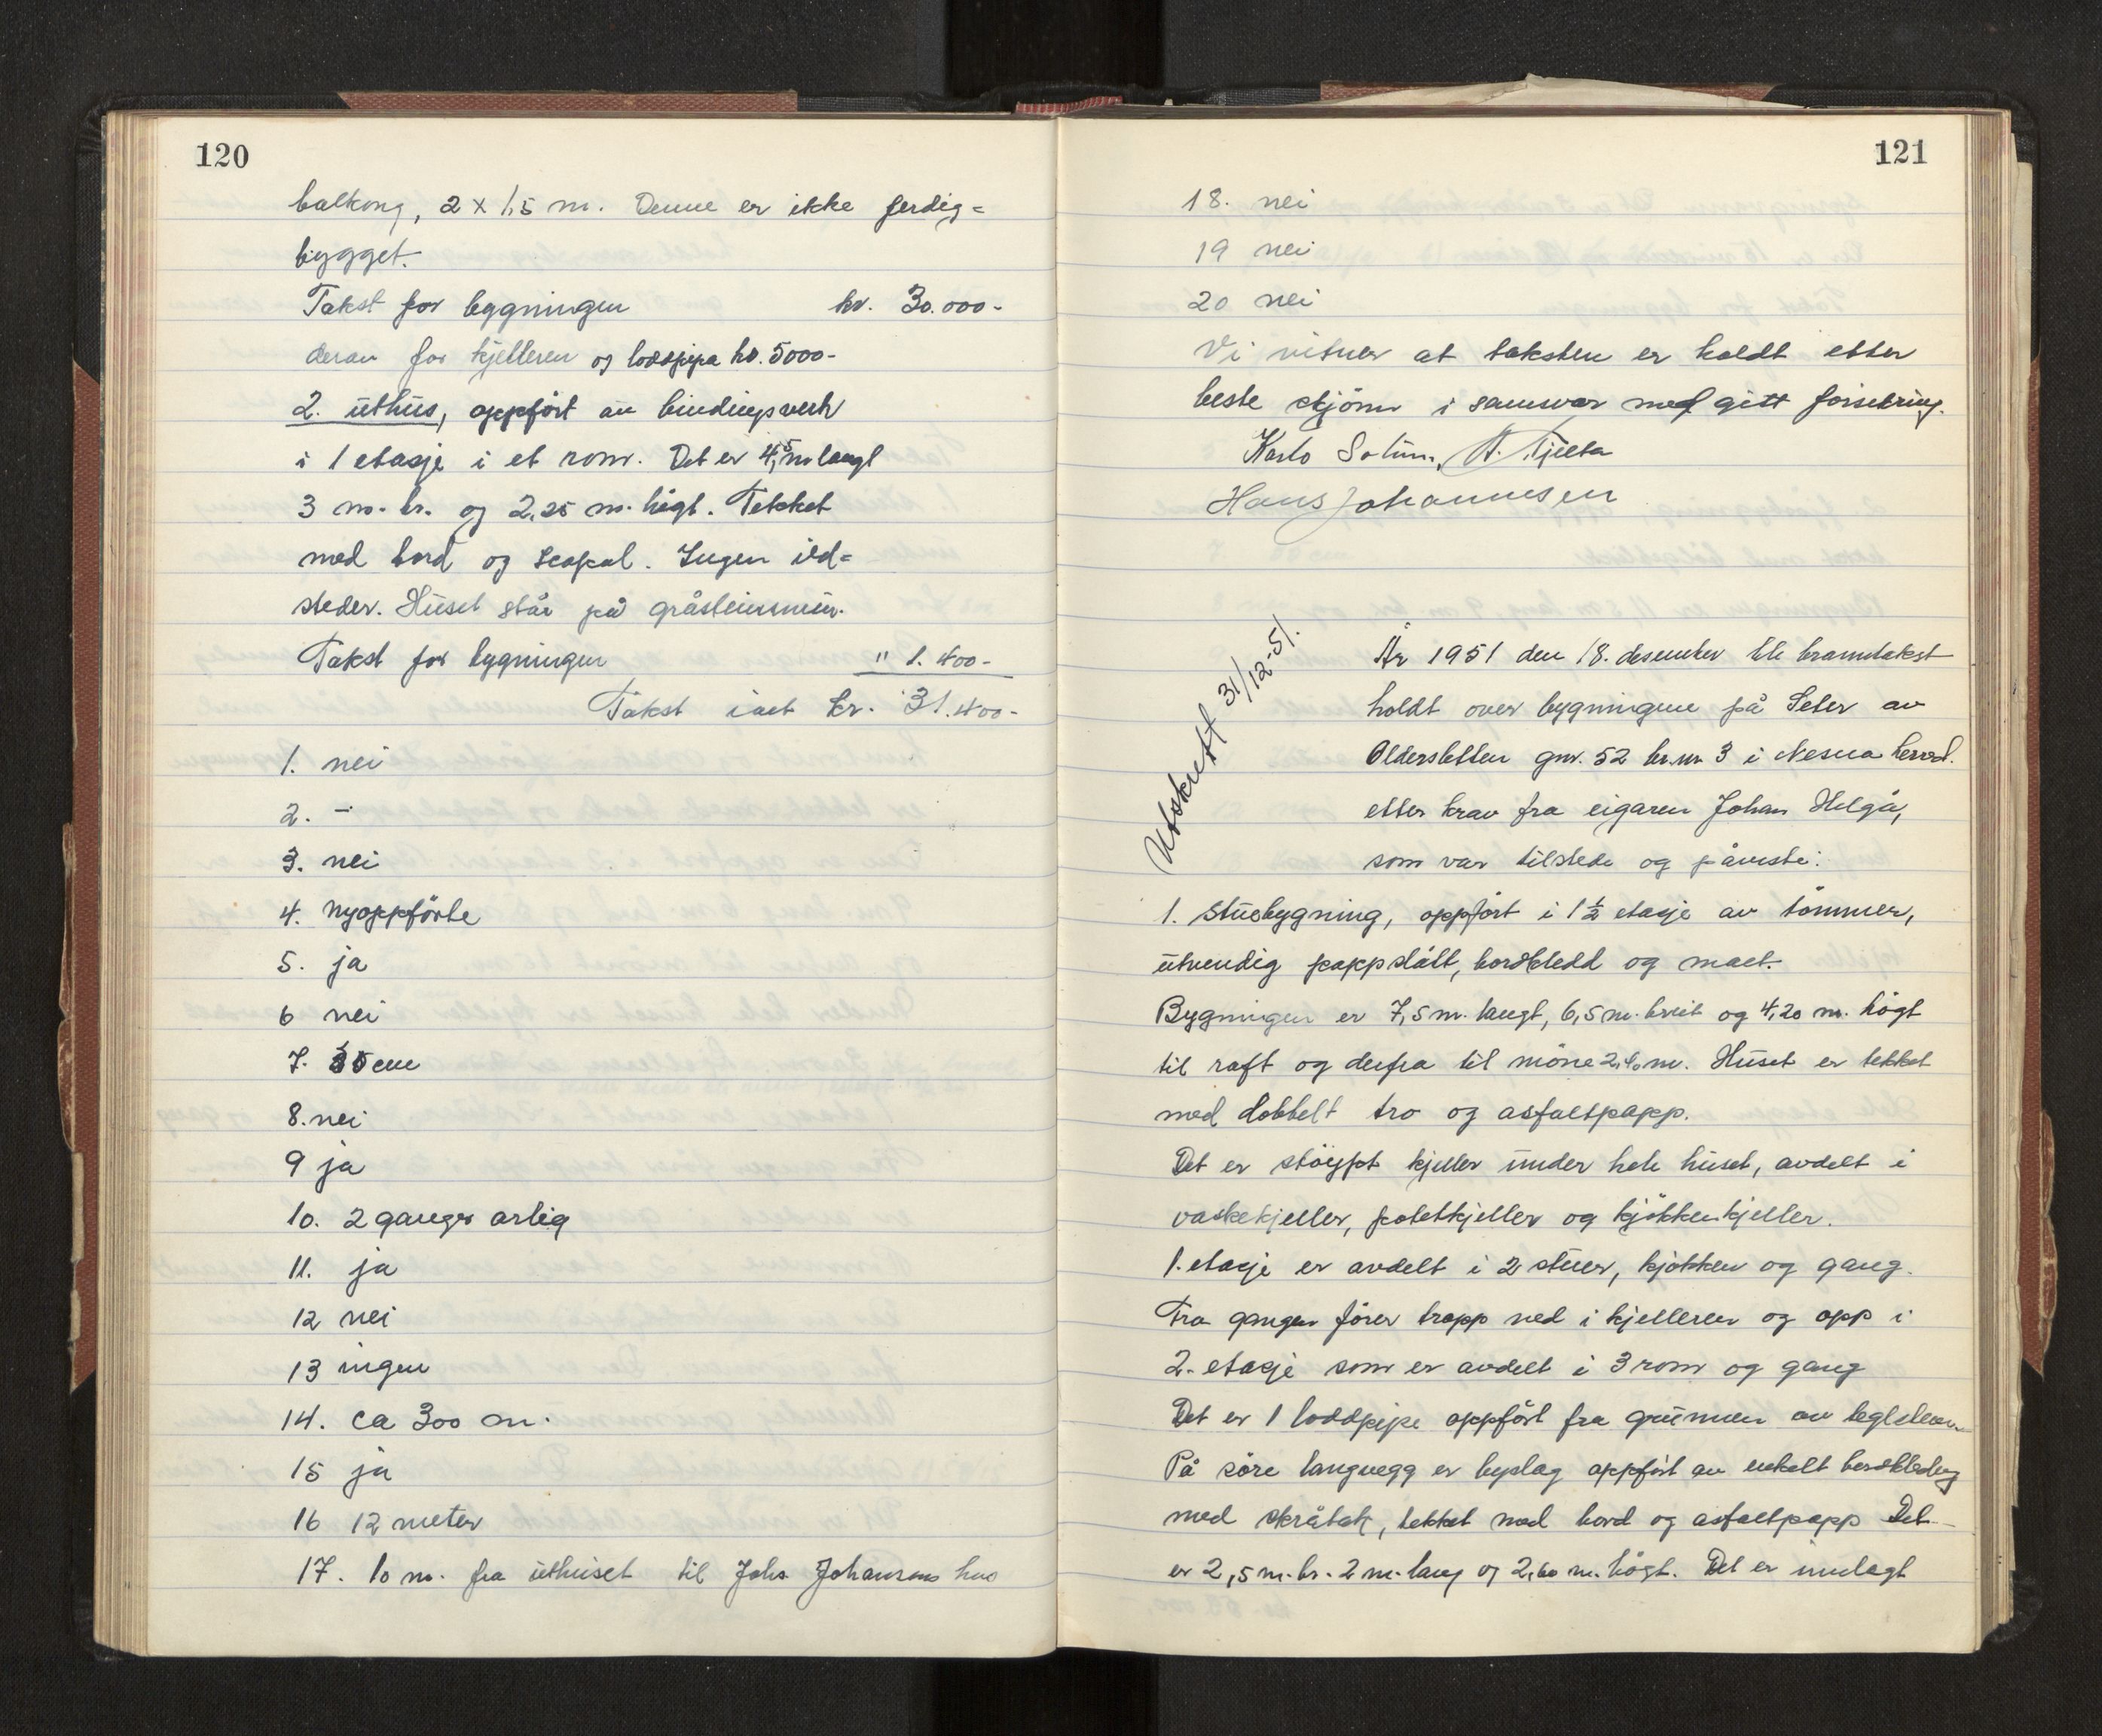 120
balkong, 2 x 1,5 m. Denne er ikke ferdig=
bygget.
Takst for bygningen kr. 30.000-
derav for kjelleren og loddpipa kr. 5000-
2. uthus, oppført av bindingsverk
i 1 etasje i et rom. Det er 4,5 m langt
3 m. br. og 2,25 m. högt. Tekket
med bord og papp. Ingen ild=
steder. Huset står på gråsteinsmur.
Takst for bygningen " 1.400-
Takst ialt kr. 31.400-
1. nei
2. -
3. nei
4. nyoppförte
5. ja
6 nei
7. cm
8. nei
9 ja
10. 2 ganger årlig
11. ja
12 nei
13 ingen
14. ca 300 m.
15 ja
16 12 meter
17. 10 m. fra uthuset til Johs Johansens hus
121
18. nei
19 nei
20 nei
Vi vitner at taksten er holdt etter
beste skjönn i samsvar med gitt forsikring.
Karlo Solum, A.
Hans Johannesen
Utskrift 31/12-51.
År 1951 den 18. desember ble branntakst
holdt over bygningene på Seter av
Oldersletten gnr. 52 br.nr 3 i Nesna herred.
etter krav fra eigaren Johan Helgå,
som var tilstede og påviste:
1. Stuebygning, oppført i 1 1/2 etasje av tömmer,
utvendig pappslått, bordkledd og malt.
Bygningen er 7,5 m. langt, 6,5 m. breit og 4,20 m. högt
til raft og derfra til möne 2,40 m. Huset er tekket
med dobbelt tro og asfaltpapp.
Det er stöypt kjeller under hele huset, avdelt i
vaskekjeller, potetkjeller og kjökkenkjeller.
1. etasje er avdelt i 2 stuer, kjökken og gang.
Fra gangen förer trapp ned i kjelleren og opp i
2. etasje som er avdelt i 3 rom og gang
Det er 1 loddpipe oppfört fra grunnen av teglstein
På söre langvegg er byslag oppfört av enkelt bordkledng
med skråtak, tekket med bord og asfaltpapp Det
er 2,5 m. br. 2 m. lang og 2,60 m. högt. Det er innlagt